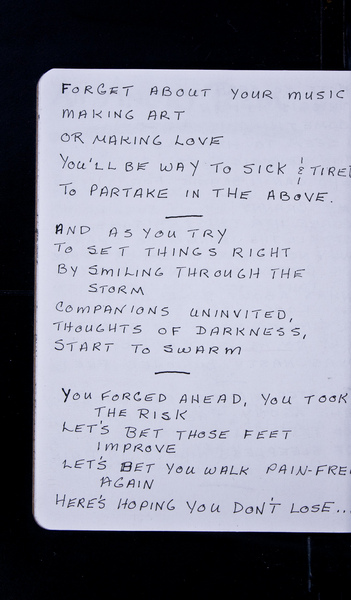 FORGET ABOUT YOUR MUSIC
MAKING ART
OR MAKING LOVE
YOU'LL BE WAY TO SICK & TIRED
TO PARTAKE IN THE ABOVE.
AND AS YOU TRY
TO SET THINGS RIGHT
BY SMILING THROUGH THE
STORM
COMPANIONS UNINVITED,
THOUGHTS OF DARKNESS,
START TO SWARM
YOU FORGED AHEAD, YOU TOOK
THE RISK
LET'S BET THOSE FEET
IMPROVE
LET'S BET YOU WALK PAIN-FREE
AGAIN
HERE'S HOPING YOU DON'T LOSE...